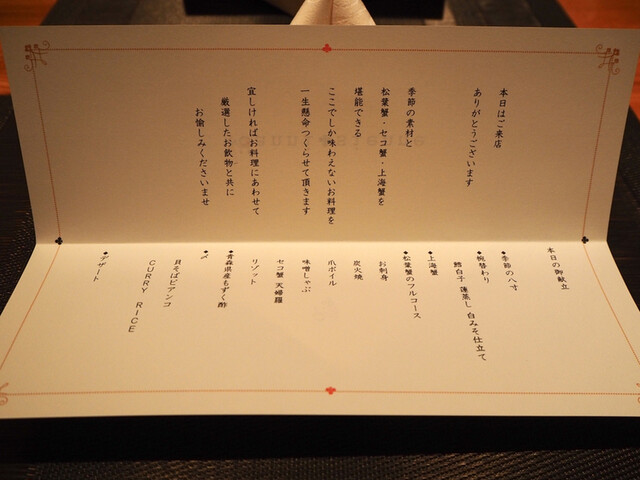 本日はご来店
ありがとうございます
季節の素材と
松葉蟹・セコ蟹・上海蟹を
堪能できる
ここでしか味わえないお料理を
一生懸命つくらせて頂きます
宜しければお料理にあわせて
厳選したお飲物と共に
お愉しみくださいませ
本日の御献立
◆季節の八寸
◆椀替わり
鱈白子 蓮蒸し 白みそ仕立て
◆上海蟹
◆松葉蟹のフルコース
お刺身
炭火焼
爪ボイル
味噌しゃぶ
セコ蟹 天婦羅
リゾット
◆青森県産もずく酢
◆〆
貝そばビアンコ
CURRY RICE
◆デザート